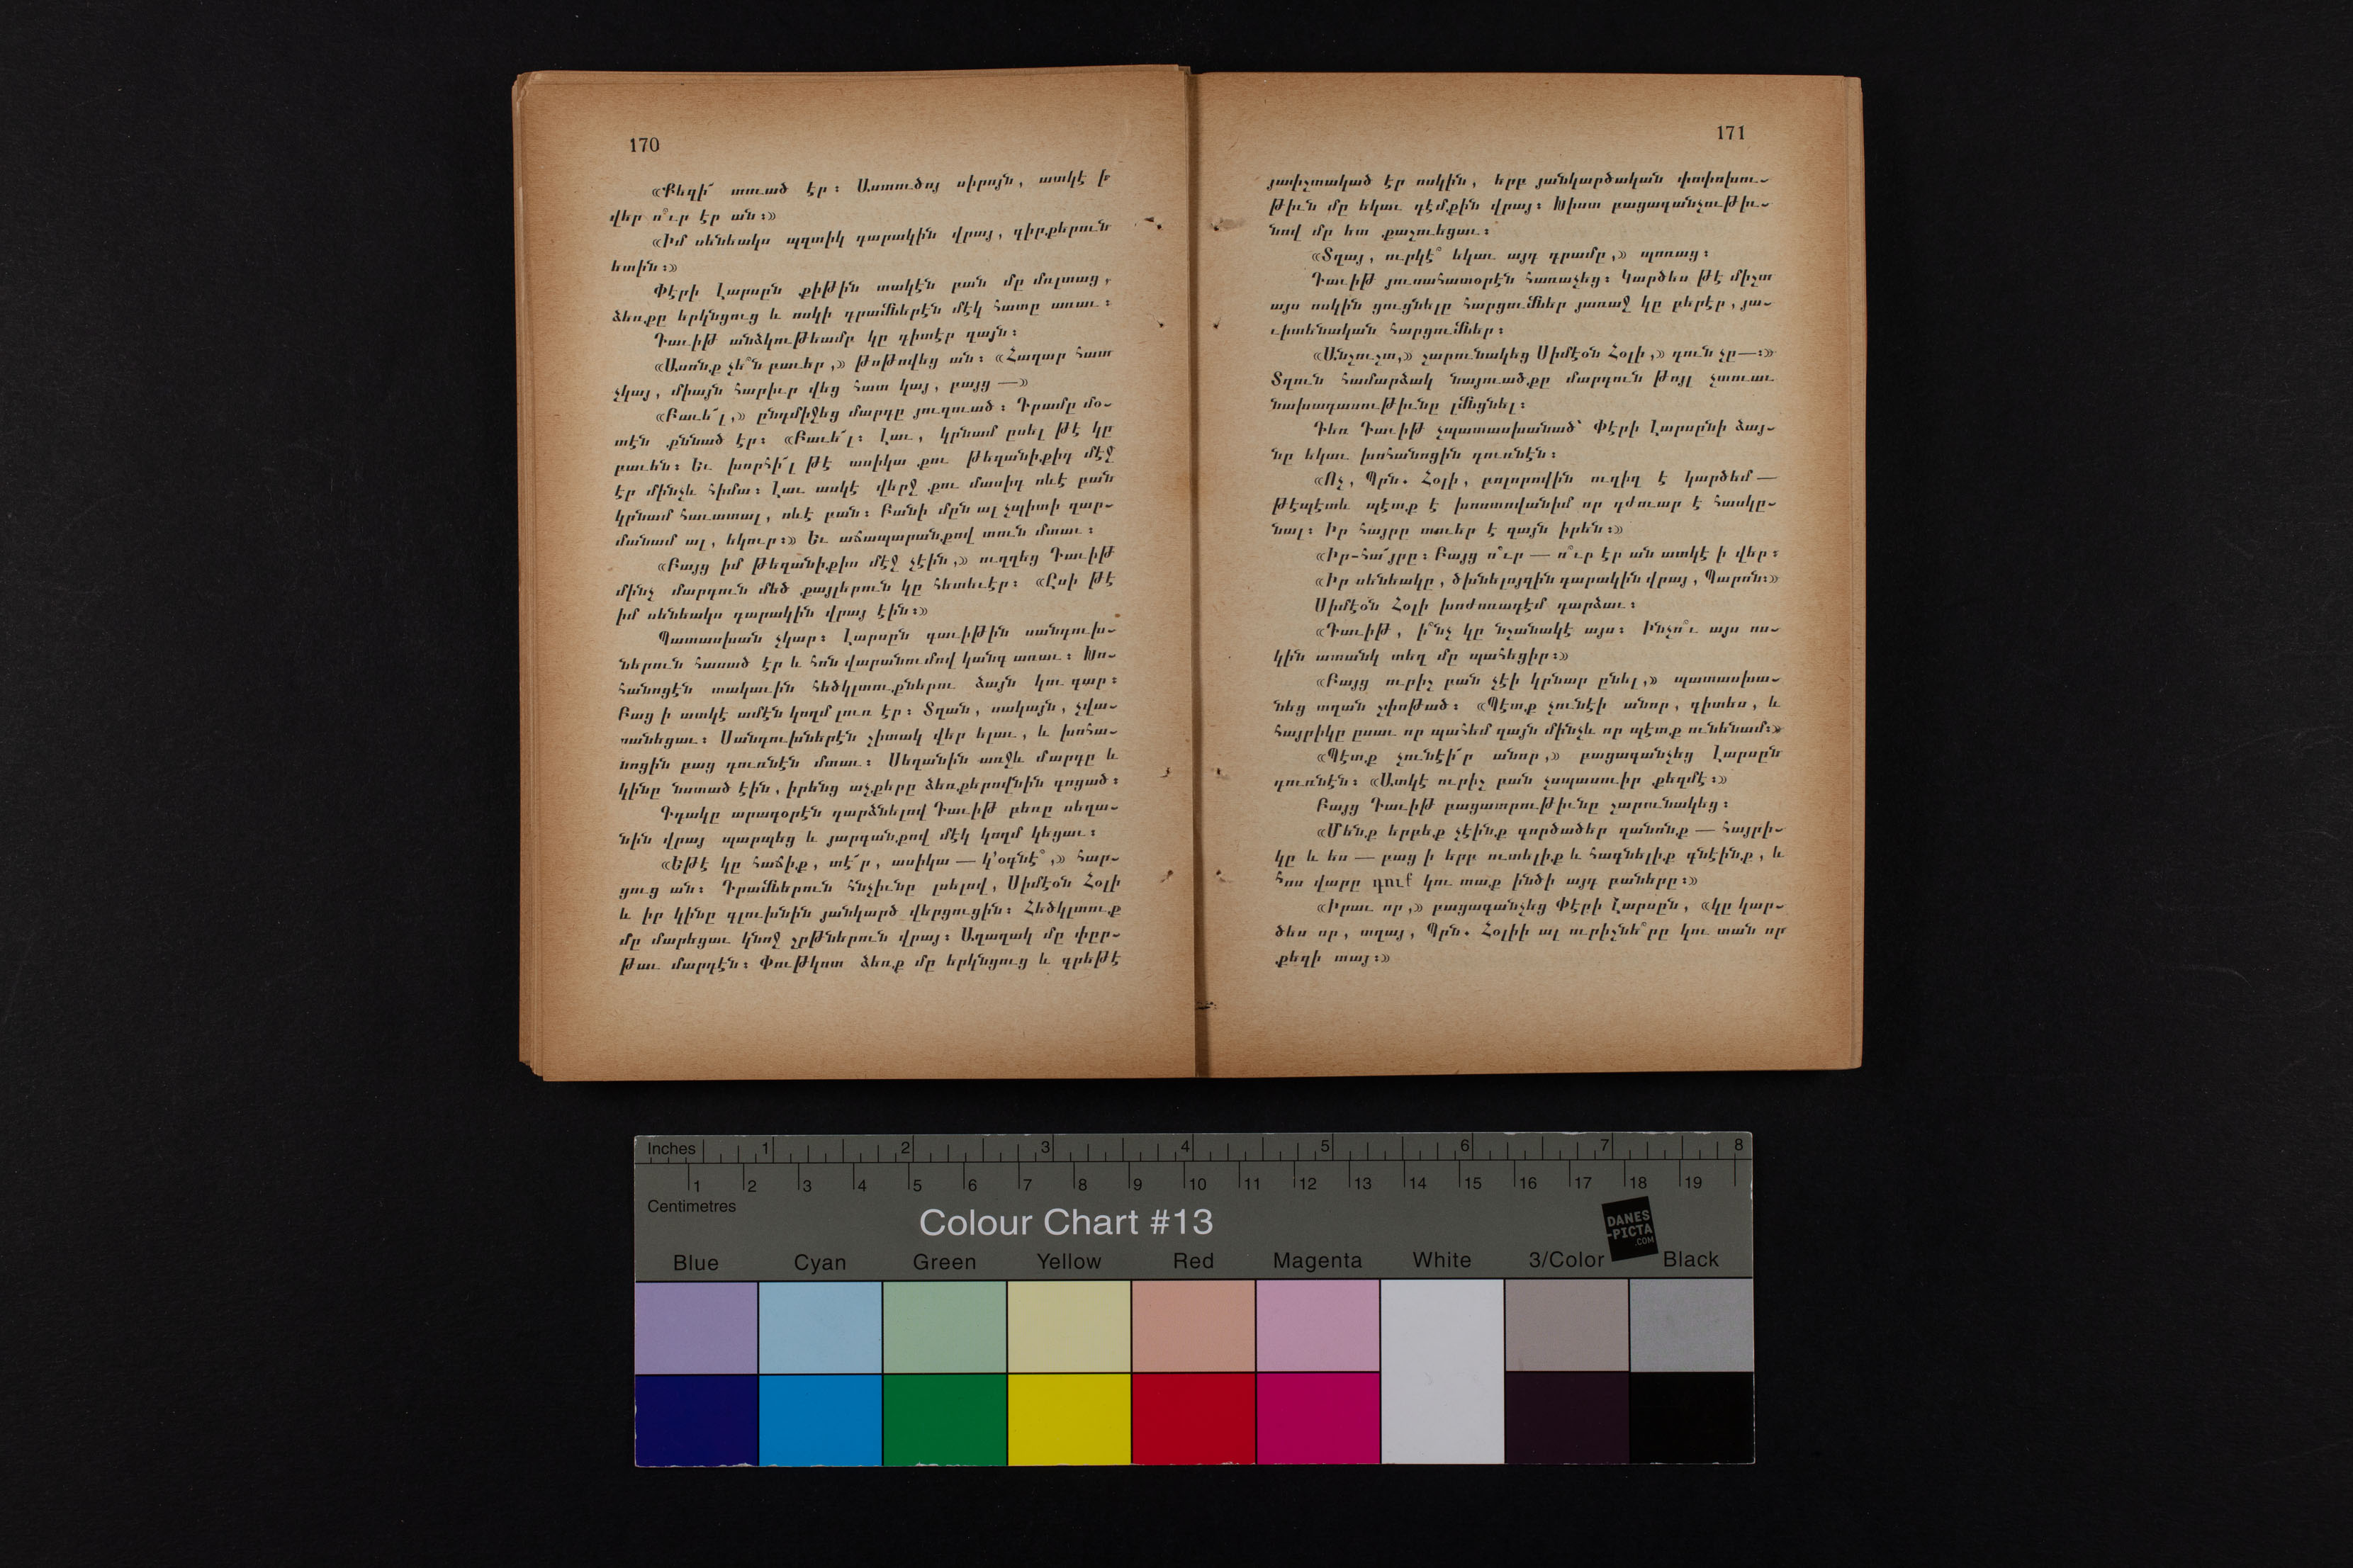 170
«Քեզի՜ տուած էր։ Աստուծոյ սիրոյն, ատկէ ի
վեր ո՞ւր էր ան։»
«Իմ սենեակս պզտիկ դարակին վրայ, գիրքերուն
ետին։»
Փէրի Լարսըն քիթին տակէն բան մը մռլտաց,
ձեռքը երկնցուց և ոսկի դրամներէն մէկ հատը առաւ։
Դաւիթ անձկութեամբ կը դիտէր զայն։
«Ասոնք չե՞ն բաւեր,» թոթովեց ան։ «Հազար հատ
չկայ, միայն հարիւր վեց հատ կայ, բայց —»
«Բաւե՜լ,» ընդմիջեց մարդը յուզուած։ Դրամը մօ-
տէն քննած էր։ «Բաւե՜լ։ Լաւ, կրնամ ըսել թէ կը
բաւեն։ Եւ խորհի՜լ թէ ասիկա քու թեզանիքիդ մէջ
էր մինչև հիմա։ Լաւ ասկէ վերջ քու մասիդ ոևէ բան
կրնամ հաւատալ, ոևէ բան։ Բանի մըն ալ չպիտի զար-
մանամ ալ, եկուր։» Եւ աճապարանքով տուն մտաւ։
«Բայց իմ թեզանիքիս մէջ չէին,» ուղղեց Դաւիթ
մինչ մարդուն մեծ քայլերուն կը հետեւէր։ «Ըսի թէ
իմ սենեակս դարակին վրայ էին։»
Պատասխան չկար։ Լարսըն գաւիթին սանդուխ-
ներուն հասած էր և հոն վարանումով կանգ առաւ։ Խո-
հանոցէն տակաւին հեծկլտուքներու ձայն կու գար։
Բաց ի ատկէ ամէն կողմ լուռ էր։ Տղան, սակայն, չվա-
րանեցաւ։ Սանդուխներէն շիտակ վեր ելաւ, և խոհա-
նոցին բաց դուռնէն մտաւ։ Սեղանին առջև մարդը և
կինը նստած էին, իրենց աչքերը ձեռքերովնին գոցած։
Գդակը արագօրէն դարձնելով Դաւիթ բեռը սեղա-
նին վրայ պարպեց և յարգանքով մէկ կողմ կեցաւ։
«Եթէ կը հաճիք, տէ՜ր, ասիկա — կ՚օգնէ՞,» հար-
ցուց ան։ Դրամներուն հնչիւնը լսելով, Սիմէօն Հօլի
և իր կինը գլուխնին յանկարծ վերցուցին։ Հեծկլտուք
մը մարեցաւ կնոջ շրթներուն վրայ։ Աղաղակ մը փըր-
թաւ մարդէն։ Փութկոտ ձեռք մը երկնցուց և գրեթէ
171
յափշտակած էր ոսկին, երբ յանկարծական փոփոխու-
թիւն մը եկաւ դէմքին վրայ։ Խիստ բացագանչութիւ-
նով մը ետ քաշուեցաւ։
«Տղայ, ուրկէ՞ եկաւ այդ դրամը,» պոռաց։
Դաւիթ յուսահատօրէն հառաչեց։ Կարծես թէ միշտ
այս ոսկին ցուցնելը հարցումներ յառաջ կը բերէր, յա-
ւիտենական հարցումներ։
«Անշուշտ,» շարունակեց Սիմէօն Հօլի,» դուն չը—։»
Տղուն համարձակ նայուածքը մարդուն թոյլ չտուաւ
նախադասութիւնը լմնցնել։
Դեռ Դաւիթ չպատասխանած՝ Փէրի Լարսընի ձայ-
նը եկաւ խոհանոցին դուռնէն։
«Ոչ, Պրն. Հօլի, բոլորովին ուղիղ է կարծեմ —
թէպէտև պէտք է խոստովանիմ որ դժուար է հասկը-
նալ։ Իր հայրը տուեր է զայն իրեն։»
«Իր-հա՜յրը։ Բայց ո՞ւր — ո՞ւր էր ան ատկէ ի վեր։
«Իր սենեակը, ծխնելոյզին դարակին վրայ, Պարոն։»
Սիմէօն Հօլի խոժոռադէմ դարձաւ։
«Դաւիթ, ի՞նչ կը նշանակէ այս։ Ինչո՞ւ այս ոս-
կին ատանկ տեղ մը պահեցիր։»
«Բայց ուրիշ բան չէի կրնար ընել,» պատասխա-
նեց տղան շփոթած։ «Պէտք չունէի անոր, գիտես, և
հայրիկը ըսաւ որ պահեմ զայն մինչև որ պէտք ունենամ։»
«Պէտք չունէի՜ր անոր,» բացագանչեց Լարսըն
դուռնէն։ «Ատկէ ուրիշ բան չսպասուիր քեզմէ։»
Բայց Դաւիթ բացատրութիւնը շարունակեց։
«Մենք երբեք չէինք գործածեր զանոնք — հայրի-
կը և ես — բաց ի երբ ուտելիք և հագնելիք գնէինք, և
հոս վարը դուք կու տաք ինծի այդ բաները։»
«Իրաւ որ,» բացագանչեց Փէրի Լարսըն, «կը կար-
ծես որ, տղայ, Պրն. Հօլիի ալ ուրիշնե՞րը կու տան որ
քեզի տայ։»
Inches 1 2 3 4 5 6 7 8
1 2 3 4 5 6 7 8 9 10 11 12 13 14 15 16 17 18 19
Centimetres
Colour Chart #13
DANES
-PICTA
.COM
Blue Cyan Green Yellow Red Magenta White 3/Color Black